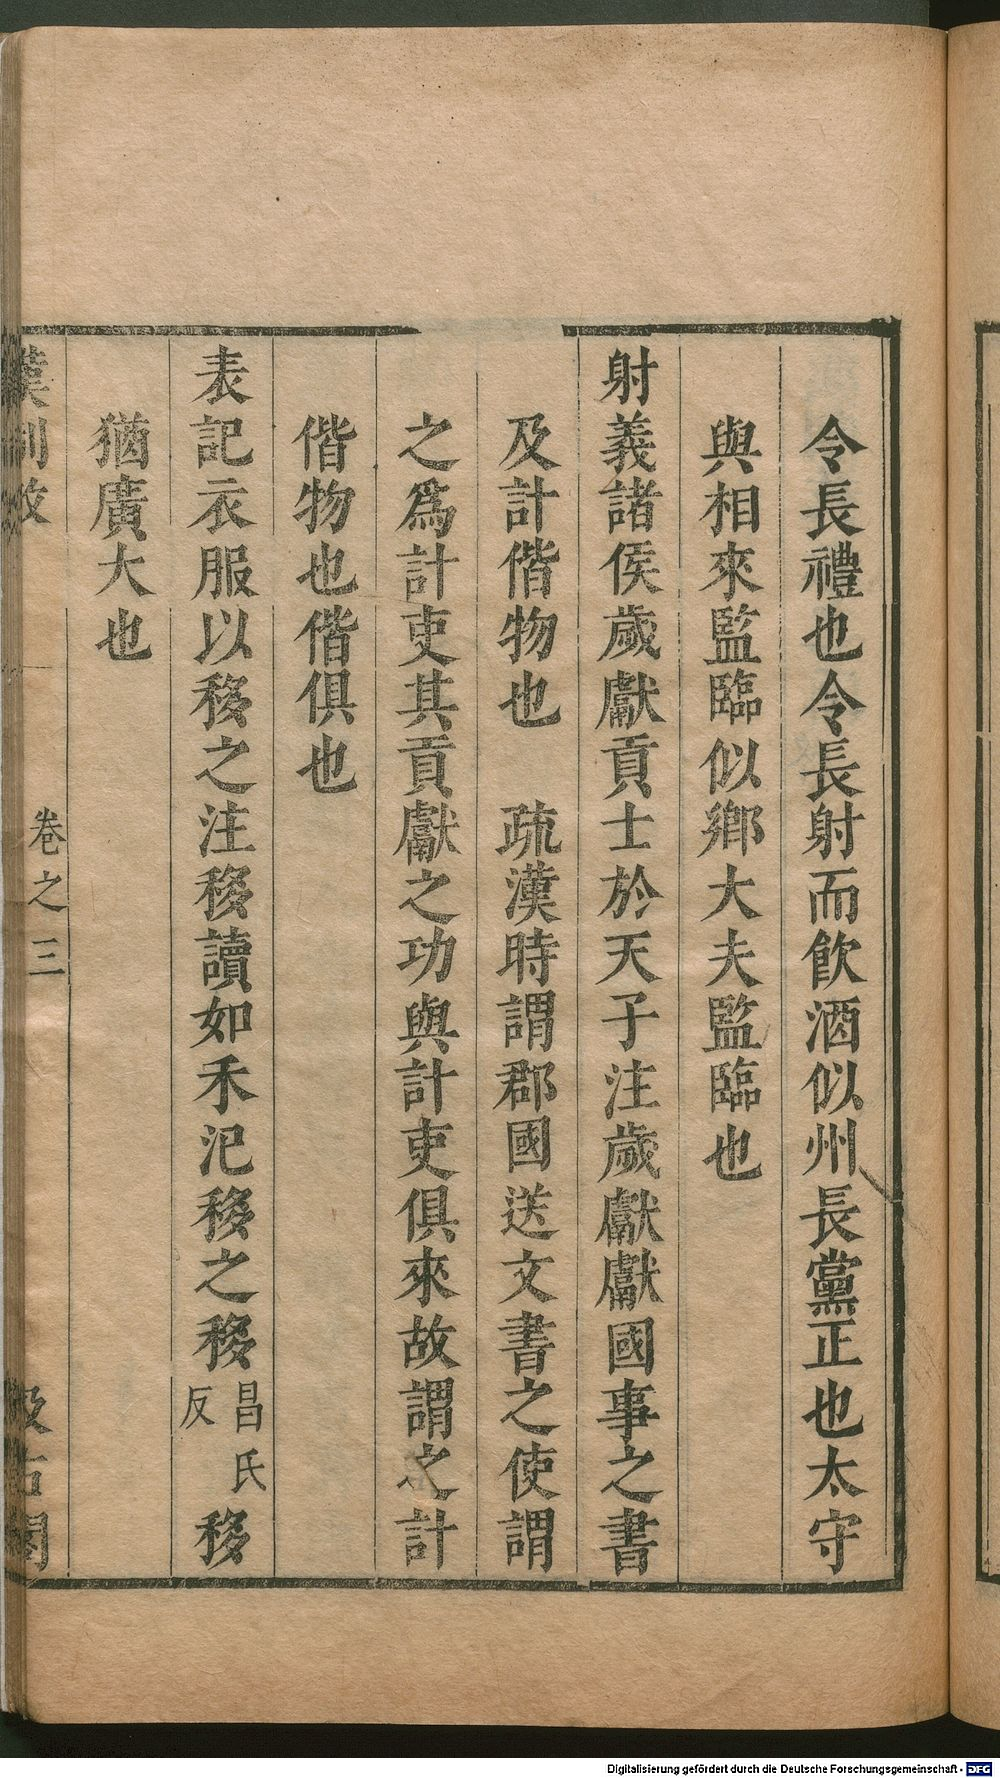 令長禮也令長射而飲酒似州長黨正也太守
與相來監臨似鄉大夫監臨也
射義諸侯歲獻貢士於天子注歲獻獻國事之書
及計偕物也　疏漢時謂郡國送文書之使謂
之爲計吏其貢獻之功與計吏俱來故謂之計
偕物也偕俱也
表記衣服以移之注移讀如禾汜移之移昌氏反移
猶廣大也
漢制攷 卷之三 汲古閣
Digitalisierung gefördert durch die Deutsche Forschungsgemeinschaft - DFG